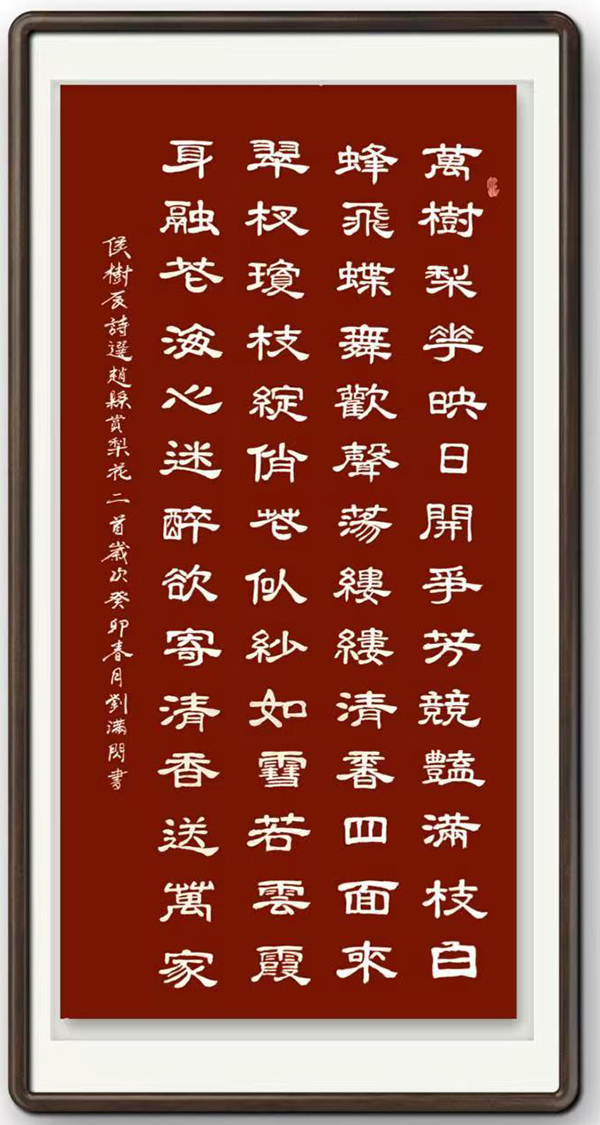 萬樹梨華映日開爭芳競豔滿枝白
蜂飛蝶舞歡聲蕩縷縷清香四面來
翠杈瓊枝綻俏花似紗如雪若雲霞
身融花海心迷醉欲寄清香送萬家
侯樹辰詩選趙縣賞梨花二首歲次癸卯春月劉滿閃書